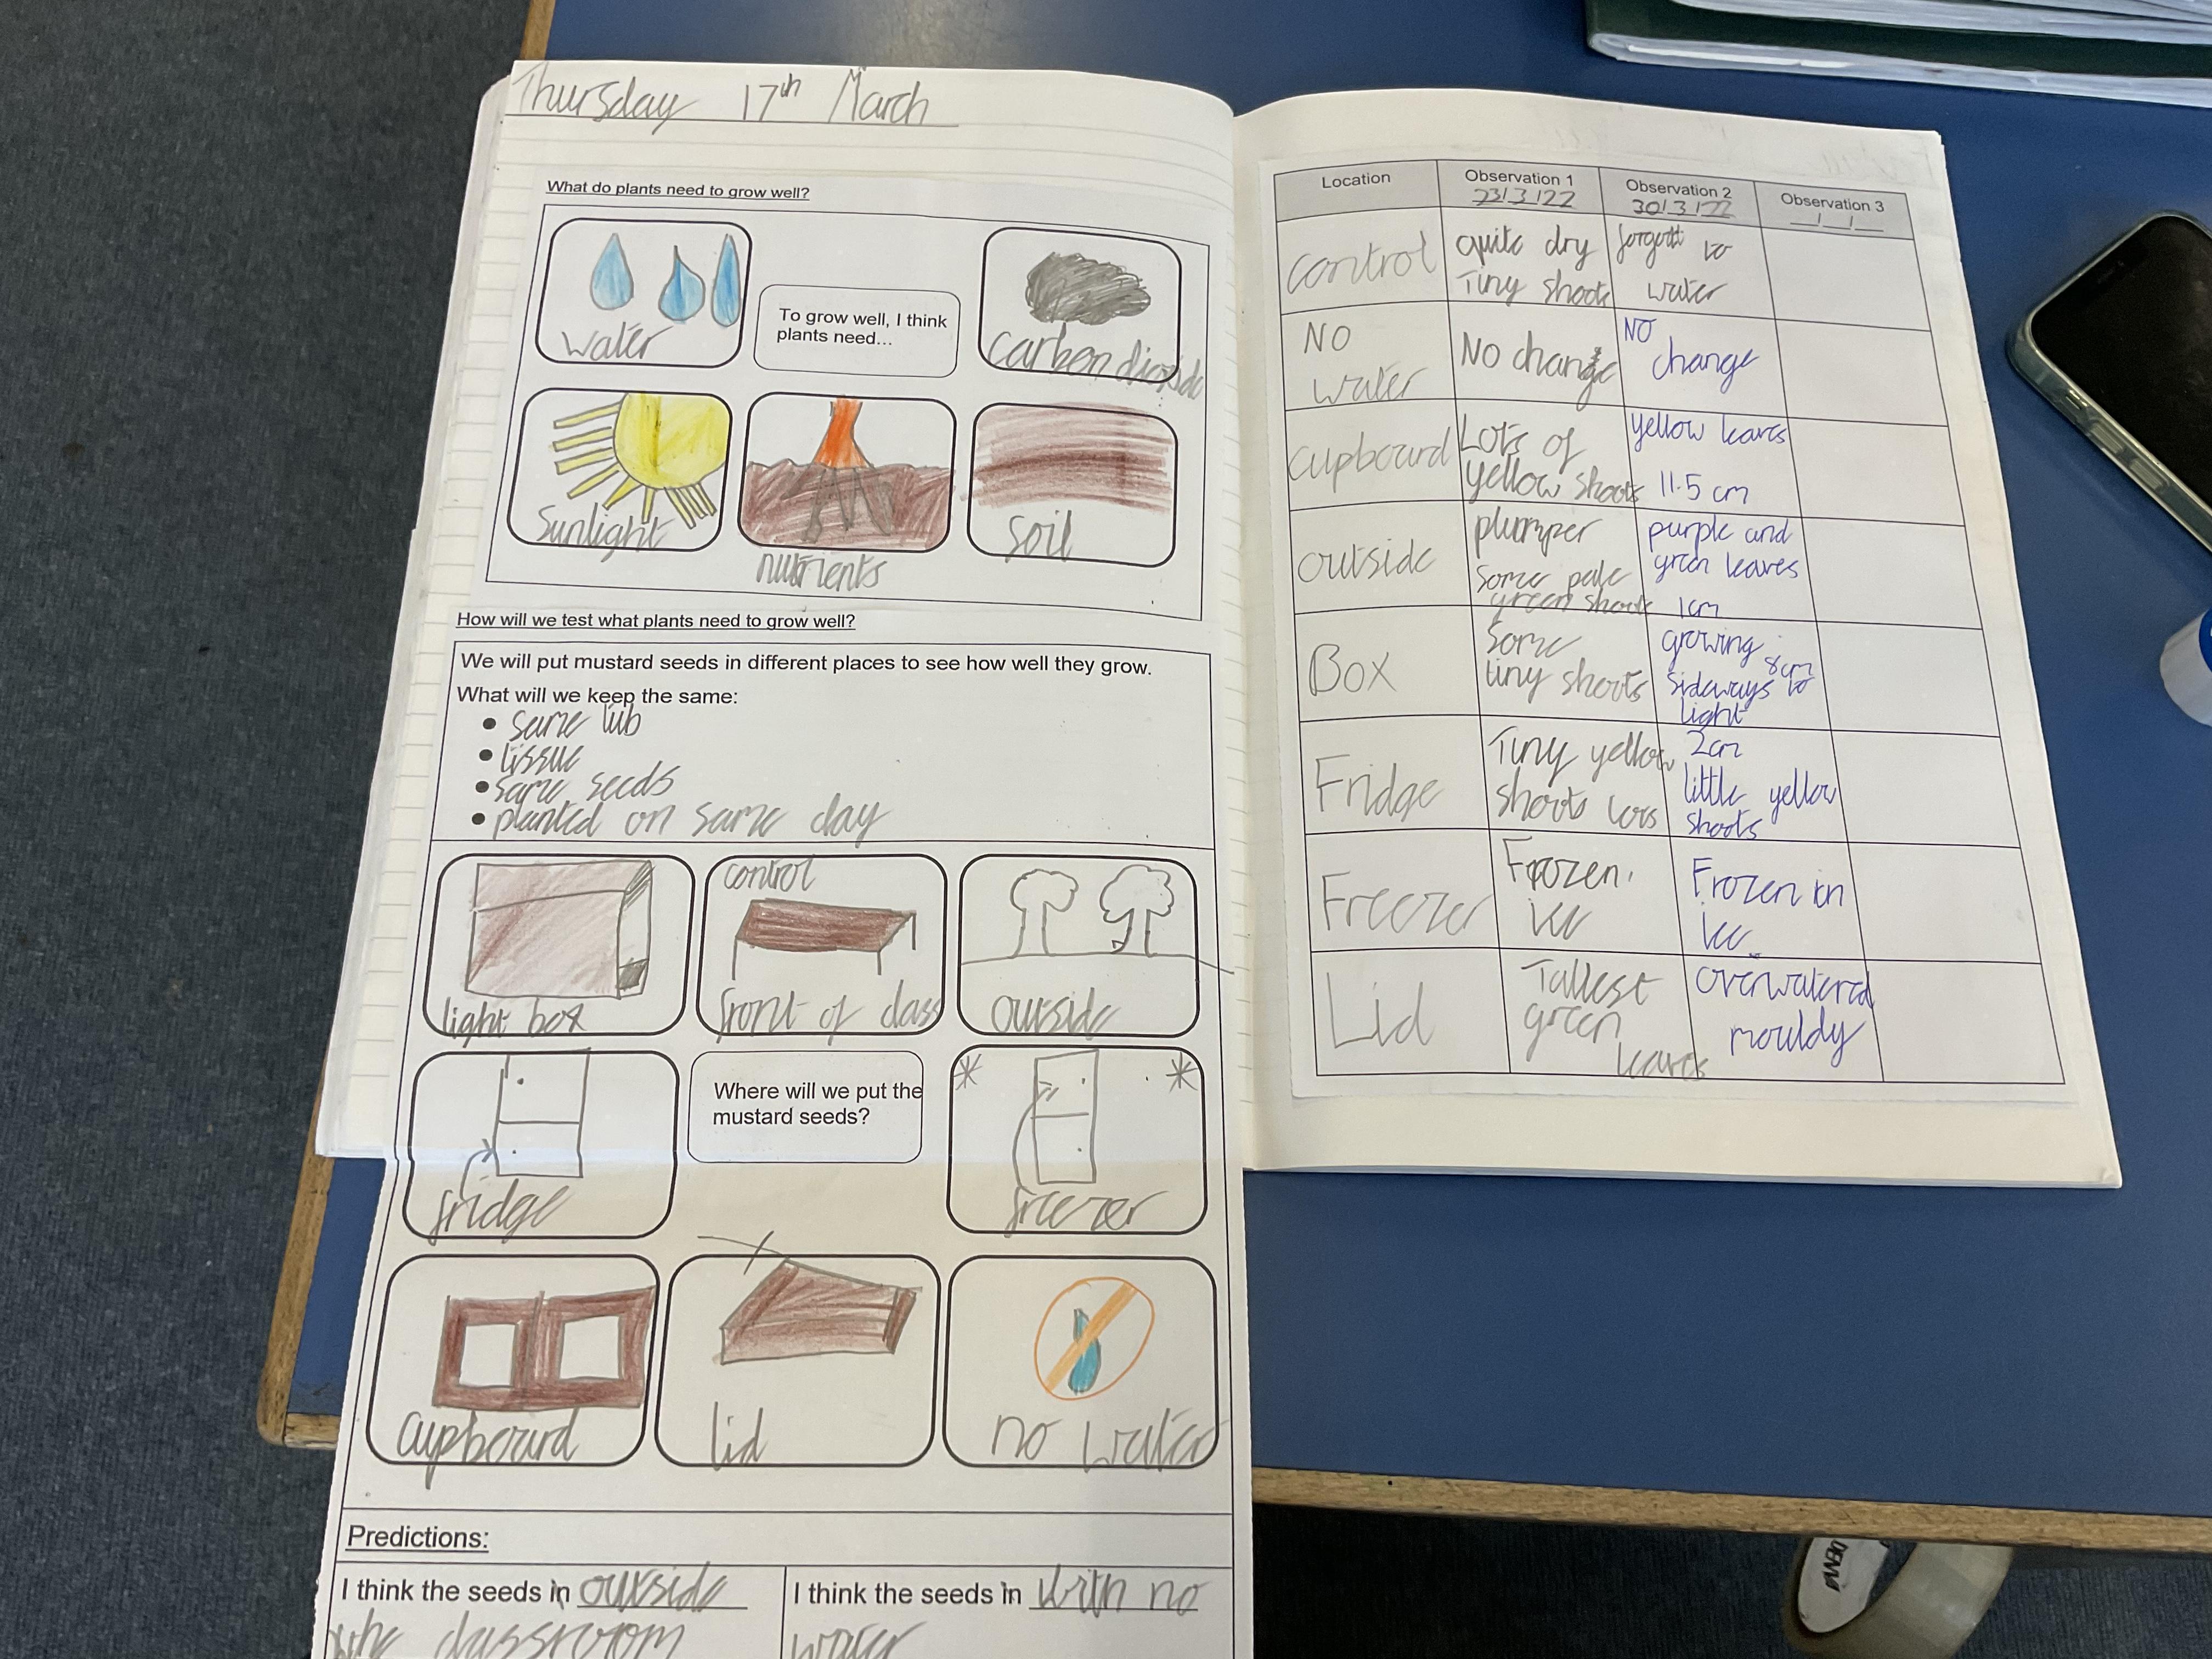 Thursday 17th March
What do plants need to grow well?
water
To grow well, I think
plants need...
carbon dioxide
Sunlight
nutrients
soil
How will we test what plants need to grow well?
We will put mustard seeds in different places to see how well they grow.
What will we keep the same:
• same tub
• tissue
• same seeds
• planted on same day
light box
control
front of class
outside
fridge
Where will we put the
mustard seeds?
freezer
cupboard
lid
no water
Predictions:
I think the seeds in outside
the classroom
I think the seeds in with no
water
Location
Observation 1
23/3/22
Observation 2
30/3/22
Observation 3
_/_/_
control
quite dry
Tiny shoots
forgot to
water
NO
water
No change
NO
change
cupboard
Lots of
yellow shoots
yellow leaves
11.5 cm
outside
plumper
some pale
green shoots
purple and
green leaves
1cm
Box
Some
tiny shoots
growing 8cm
sideways to
light
Fridge
Tiny yellow
shoots lots
2cm
little yellow
shoots
Freezer
Frozen.
ice
Frozen in
ice
Lid
Tallest
green
leaves
overwatered
mouldy